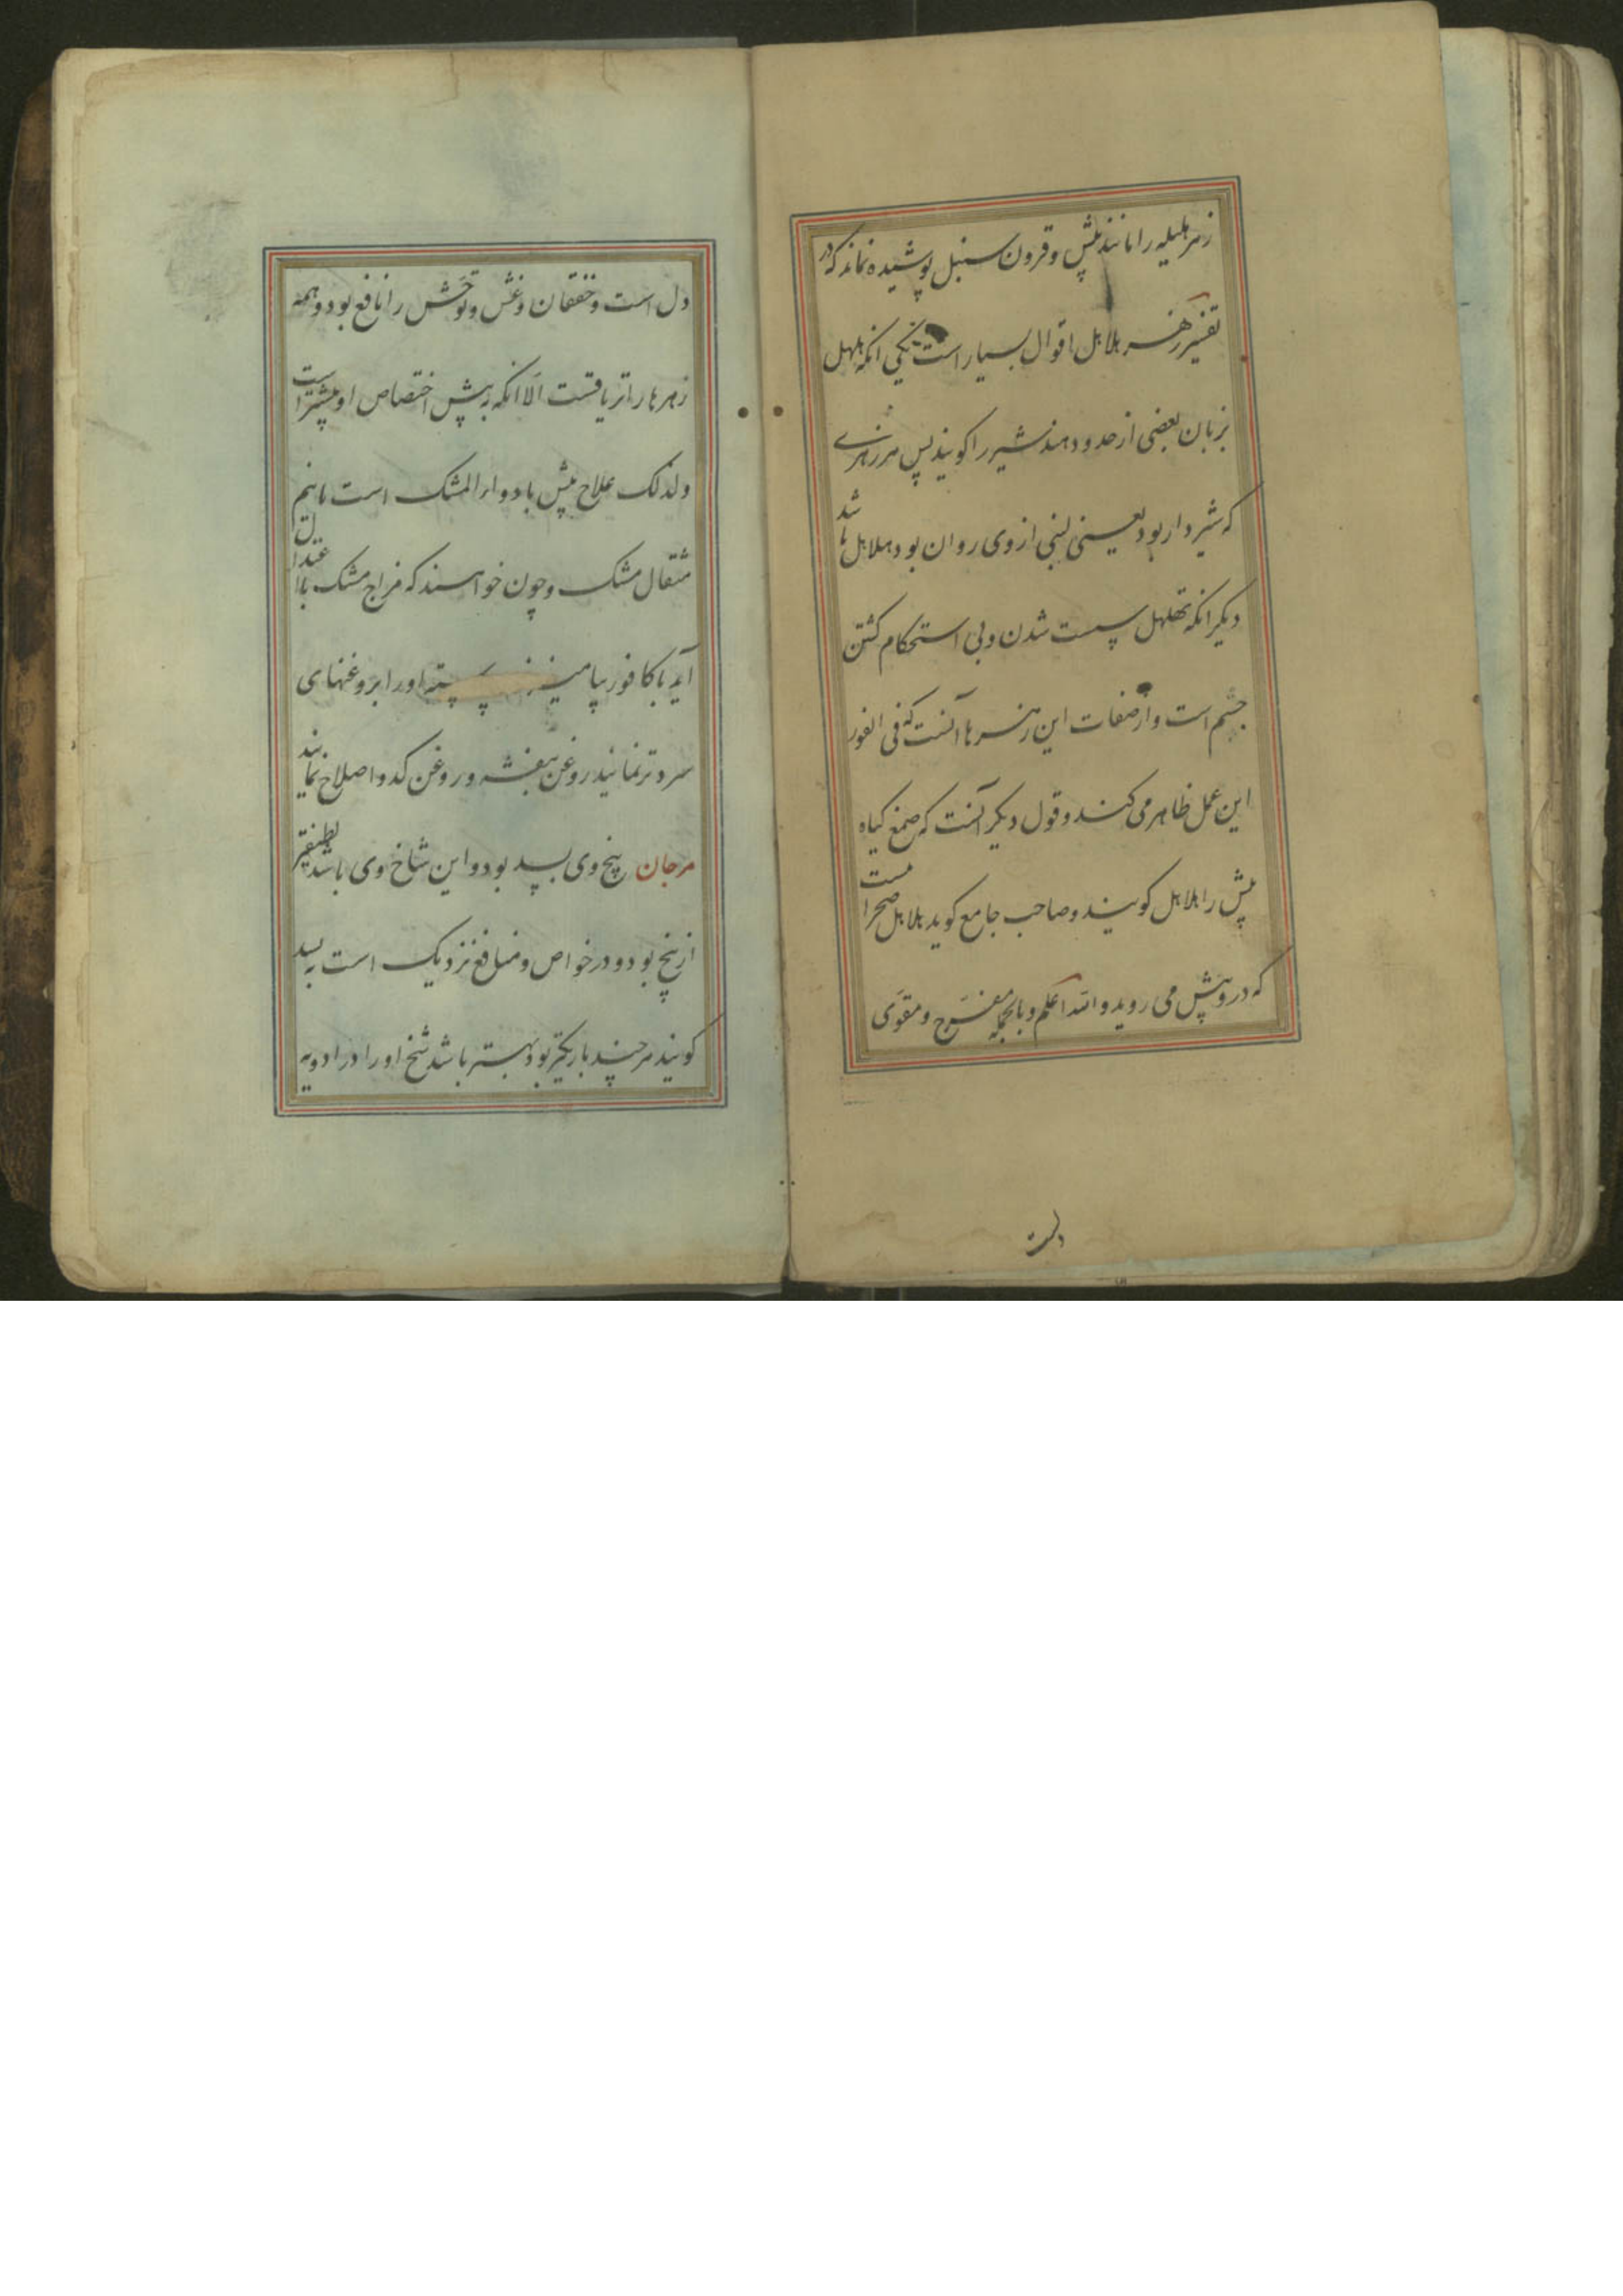 زهر هلیله را مانند بیش و قرون سنبل پوشیده نماند که در
تفسیر زهر هلاهل اقوال بسیار است یکی انکه هلهل
بزبان بعضی از حدود هند شیر را کویند پس هر زهری
که شیردار بود یعنی لبنی از وی روان بود هلاهل باشد
دیکر انکه تهلهل سست شدن و بی استحکام کشتن
جسم است و از صفات این زهرها آنست که فی الفور
این عمل ظاهر می کند و قول دیکر آنست که صمغ کیاه
بیش را هلاهل کویند و صاحب جامع کوید هلاهل صحرا ست
که درو بیش می روید والله اعلم و بالجمله مفرح و مقوی
دل است
دل است و خفقان و غش و توحش را نافع بود و همه
زهرها را تریاقست الا انکه ببیش اختصاص او بیشتر است
ولذلک علاج بیش با دواء المشک است با نیم
مثقال مشک و چون خواهند که مزاج مشک با اعتدال
آید با کافور بیامیزند اورا بروغنهای
سرد و تر نمایند روغن بنفشه و روغن کدو اصلاح نمایند
مرجان بیخ وی بسد بود و این شاخ وی باشد
از بیخ بود و در خواص و منافع نزدیک است به بسد
کویند هر چند باریکتر بود بهتر باشد شیخ اورا در ادویه